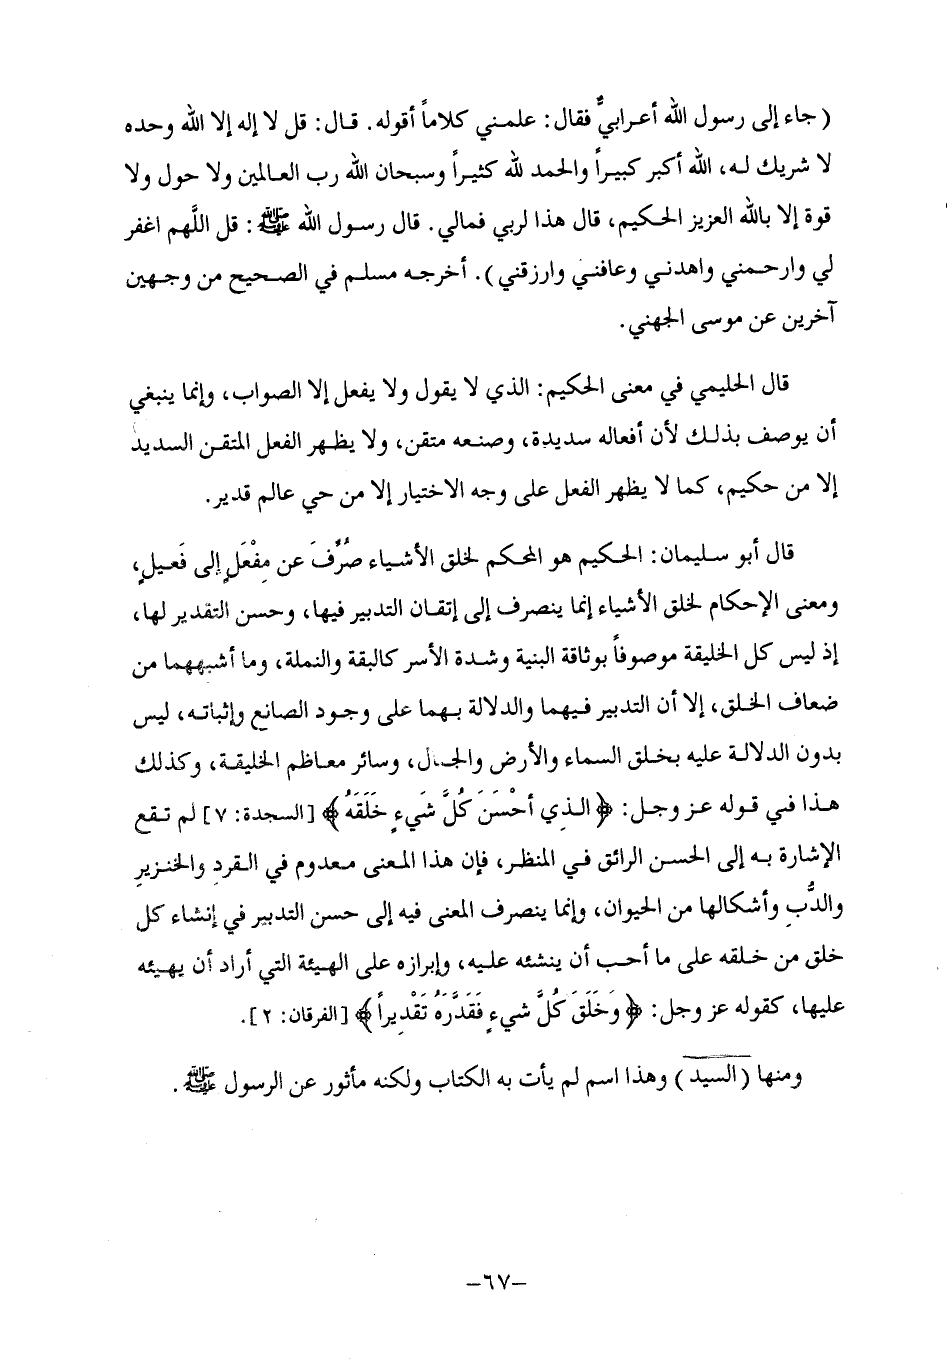 ( جاء إلى رسول الله أعرابيٌّ فقال: علمني كلاماً أقوله. قال: قل لا إله إلا الله وحده
لا شريك له، الله أكبر كبيراً والحمد لله كثيراً وسبحان الله رب العالمين ولا حول ولا
قوة إلا بالله العزيز الحكيم، قال هذا لربي فمالي. قال رسول الله ﷺ: قل اللَّهم اغفر
لي وارحمني واهدني وعافني وارزقني ). أخرجه مسلم في الصحيح من وجهين
آخرين عن موسى الجهني.
قال الحليمي في معنى الحكيم: الذي لا يقول ولا يفعل إلا الصواب، وإنما ينبغي
أن يوصف بذلك لأن أفعاله سديدة، وصنعه متقن، ولا يظهر الفعل المتقن السديد
إلا من حكيم، كما لا يظهر الفعل على وجه الاختيار إلا من حي عالم قدير.
قال أبو سليمان: الحكيم هو المحكم لخلق الأشياء صُرِّفَ عن مِفْعَلٍ إلى فَعيلٍ،
ومعنى الإحكام لخلق الأشياء إنما ينصرف إلى إتقان التدبير فيها، وحسن التقدير لها،
إذ ليس كل الخليقة موصوفاً بوثاقة البنية وشدة الأسر كالبقة والنملة، وما أشبههما من
ضعاف الخلق، إلا أن التدبير فيهما والدلالة بهما على وجود الصانع وإثباته، ليس
بدون الدلالة عليه بخلق السماء والأرض والجبال، وسائر معاظم الخليقة، وكذلك
هذا في قوله عز وجل: ﴿ الذِي أحْسَنَ كُلَّ شَيءٍ خَلَقَهُ ﴾ [السجدة: ٧] لم تقع
الإشارة به إلى الحسن الرائق في المنظر، فإن هذا المعنى معدوم في القردِ والخنزيرِ
والدُّب وأشكالها من الحيوان، وإنما ينصرف المعنى فيه إلى حسن التدبير في إنشاء كل
خلق من خلقه على ما أحب أن ينشئه عليه، وإبرازه على الهيئة التي أراد أن يهيئه
عليها، كقوله عز وجل: ﴿ وَخَلَقَ كُلَّ شيءٍ فَقَدَّرَهُ تَقْدِيراً ﴾ [الفرقان: ٢].
ومنها ( السيد ) وهذا اسم لم يأت به الكتاب ولكنه مأثور عن الرسول ﷺ.
-٦٧-